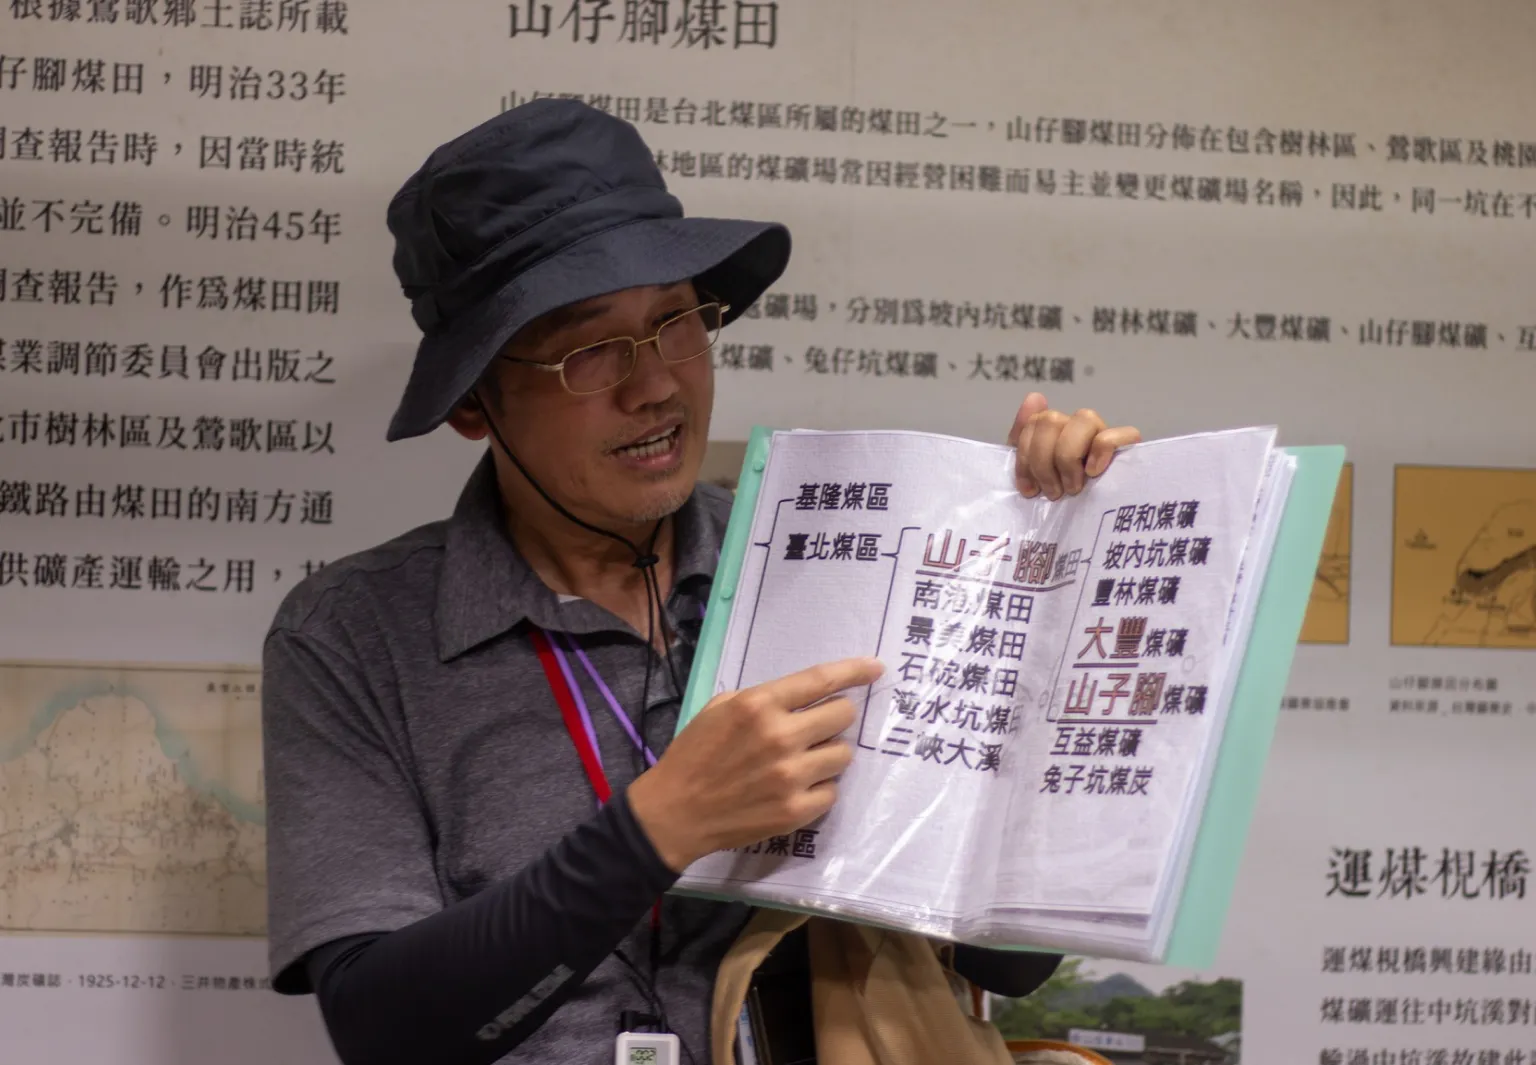 根據鶯歌鄉土誌所載
仔腳煤田，明治33年
調查報告時，因當時統
並不完備。明治45年
調查報告，作爲煤田開
煤業調節委員會出版之
市樹林區及鶯歌區以
鐵路由煤田的南方通
供礦產運輸之用，
灣炭礦誌，1925-12-12，三井物產株式
山仔腳煤田
山仔腳煤田是台北煤區所屬的煤田之一，山仔腳煤田分佈在包含樹林區、鶯歌區及桃園
林地區的煤礦場常因經營困難而易主並變更煤礦場名稱，因此，同一坑在不
礦場，分別爲坡內坑煤礦、樹林煤礦、大豐煤礦、山仔腳煤礦、互
煤礦、兔仔坑煤礦、大榮煤礦。
基隆煤區
臺北煤區
山子腳煤田
南港煤田
景美煤田
石碇煤田
水坑煤田
三峽大溪
煤區
昭和煤礦
坡內坑煤礦
豐林煤礦
大豐煤礦
山子腳煤礦
互益煤礦
兔子坑煤炭
山仔腳煤田分布圖
運煤梘橋
運煤梘橋興建緣由
煤礦運往中坑溪對
輸過中坑溪故建此